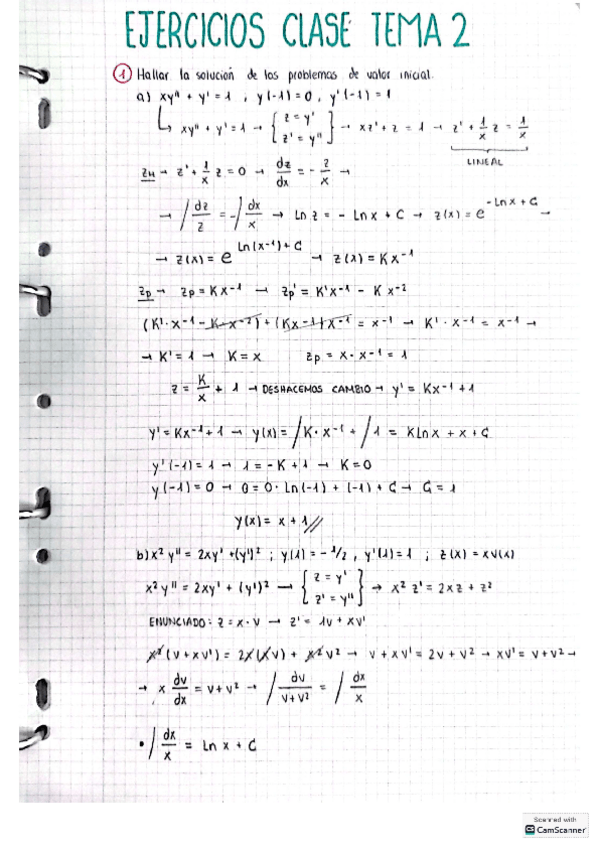 EJERCICIOS CLASE TEMA 2
① Hallar la solución de los problemas de valor inicial.
a) xy'' + y' = 1 , y(-1) = 0 , y'(-1) = 1
↳ xy'' + y' = 1 → { z = y' z' = y'' } → xz' + z = 1 → z' + 1/x z = 1/x
LINEAL
zH → z' + 1/x z = 0 → dz/dx = - z/x →
→ ∫ dz/z = -∫ dx/x → Ln z = - Ln x + C → z(x) = e^(-Ln x + C) →
→ z(x) = e^(Ln(x^-1) + C) → z(x) = Kx^-1
zp → zp = Kx^-1 → zp' = K'x^-1 - Kx^-2
(K'·x^-1 - K·x^-2) + (Kx^-1)x^-1 = x^-1 → K'·x^-1 = x^-1 →
→ K' = 1 → K = x zp = x·x^-1 = 1
z = K/x + 1 → DESHACEMOS CAMBIO → y' = Kx^-1 + 1
y' = Kx^-1 + 1 → y(x) = ∫K·x^-1 + ∫1 = K Ln x + x + C
y'(-1) = 1 → 1 = -K + 1 → K = 0
y(-1) = 0 → 0 = 0·Ln(-1) + (-1) + C → C = 1
y(x) = x + 1//
b) x² y'' = 2xy' + (y')² ; y(1) = -1/2 , y'(1) = 1 ; z(x) = xv(x)
x² y'' = 2xy' + (y')² → { z = y' z' = y'' } → x² z' = 2xz + z²
ENUNCIADO: z = x·v → z' = 1v + xv'
x² (v + xv') = 2x(xv) + x²v² → v + xv' = 2v + v² → xv' = v + v² →
→ x dv/dx = v + v² → ∫ dv/(v + v²) = ∫ dx/x
• ∫ dx/x = Ln x + C
Scanned with
CS CamScanner